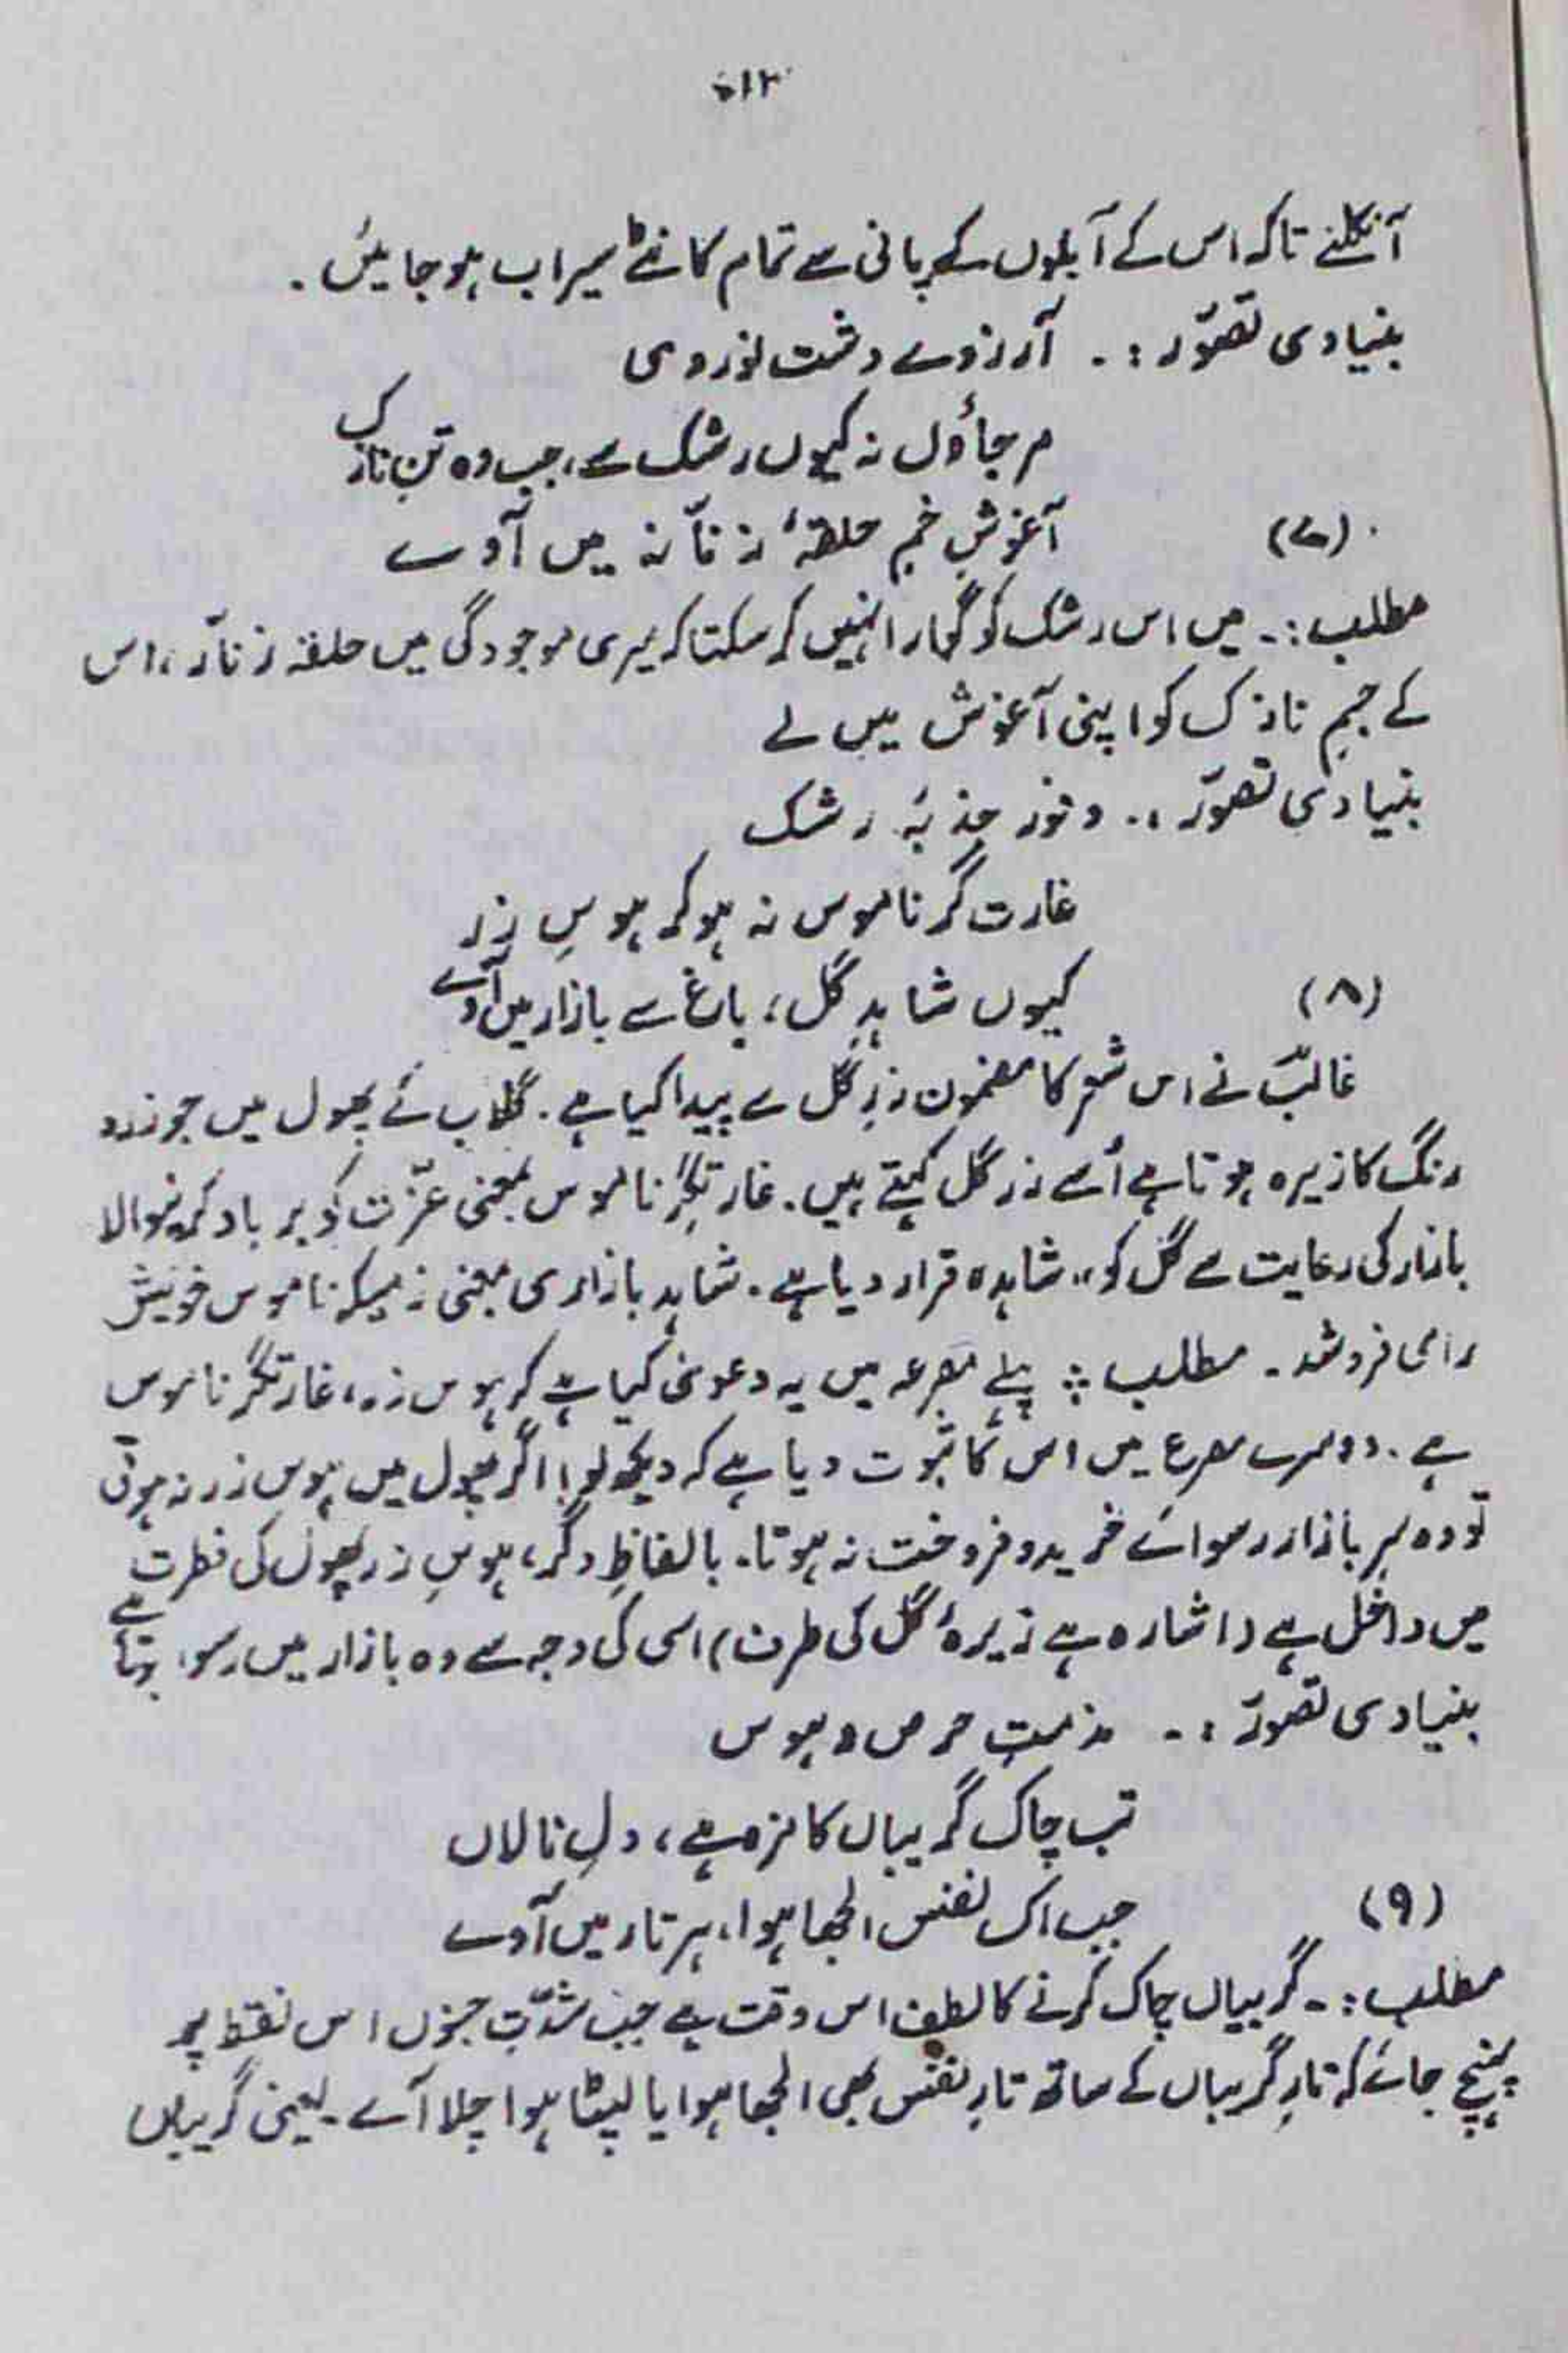 ۵۱۲
آنکلنے تاکہ اس کے آبلوں کے پانی سے تمام کانٹے سیراب ہو جایئں ۔
بنیادی تصوّر :۔ آرزوے دشت نوردی
مرجاؤں نہ کیوں رشک سے، جب وہ تنِ نازک
آغوشِ خمِ حلقۂ زنّار میں آوے
(۷)
مطلب :۔ میں اس رشک کو گوارا نہیں کر سکتا کہ میری موجودگی میں حلقہ زنّار، اس
کے جسمِ نازک کو اپنی آغوش میں لے
بنیادی تصوّر :۔ وفورِ جذبۂ رشک
غارت گرِ ناموس نہ ہو گر ہوسِ زر
کیوں شاہدِ گل، باغ سے بازار میں آوے
(۸)
غالبؔ نے اس شعر کا مضمون زرِ گل سے پیدا کیا ہے ۔ گلاب کے پھول میں جو زرد
رنگ کا زیرہ ہوتا ہے اُسے زرِ گل کہتے ہیں ۔ غارتگرِ ناموس بمعنی عزّت کو برباد کرنیوالا
بازار کی رعایت سے گل کو "شاہد" قرار دیا ہے ۔ شاہد بازاری بمعنی زنیکہ ناموس خویش
را می فروشد ۔ مطلب :۔ پہلے مصرعہ میں یہ دعویٰ کیا ہے کہ ہوس زر، غارتگر ناموس
ہے ۔ دوسرے مصرع میں اس کا ثبوت دیا ہے کہ دیکھ لو! اگر پھول میں ہوس زر نہ ہوتی
تو وہ سرِ بازار رسوائے خرید و فروخت نہ ہوتا ۔ بالفاظِ دگر، ہوسِ زر پھول کی فطرت
میں داخل ہے (اشارہ ہے زیرۂ گل کی طرف) اسی کی وجہ سے وہ بازار میں رسوا ہوتا ہے
بنیادی تصوّر :۔ مذمتِ حرص و ہوس
تب چاک گریباں کا مزہ ہے، دلِ نالاں
جب اک نفس الجھا ہوا، ہر تار میں آوے
(۹)
مطلب :۔ گریباں چاک کرنے کا لطف اس وقت ہے جب شدّتِ جنوں اس نقطہ پر
پہنچ جائے کہ تارِ گریباں کے ساتھ تارِ نفس بھی الجھا ہوا یا لپٹا ہوا چلا آے ۔ یعنی گریباں